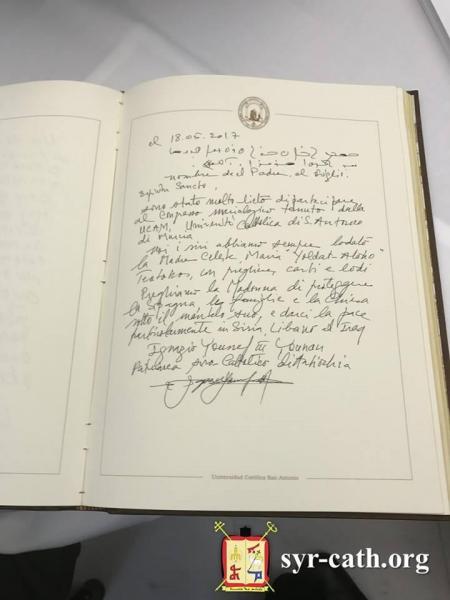 el 18.05.2017
nombre del Padre, el
Espíritu Sancto,
sono stato molto lieto di partecipare
al Congresso mariologico tenuto dalla
UCAM, Università Cattolica di S. Antonio
di Murcia
noi i siri abbiamo sempre lodato
la Madre Celeste Maria "Yoldat Aloho"
Teotokos, con preghiere, canti e lodi
Preghiamo la Madonna di proteggere
la Spagna, le famiglie e la Chiesa
sotto il mantello Suo, e darci la pace
particolarmente in Siria, Libano ed Iraq
Ignazio Youssef III Younan
Patriarca Siro Cattolico di Antiochia
Universidad Católica San Antonio
syr-cath.org